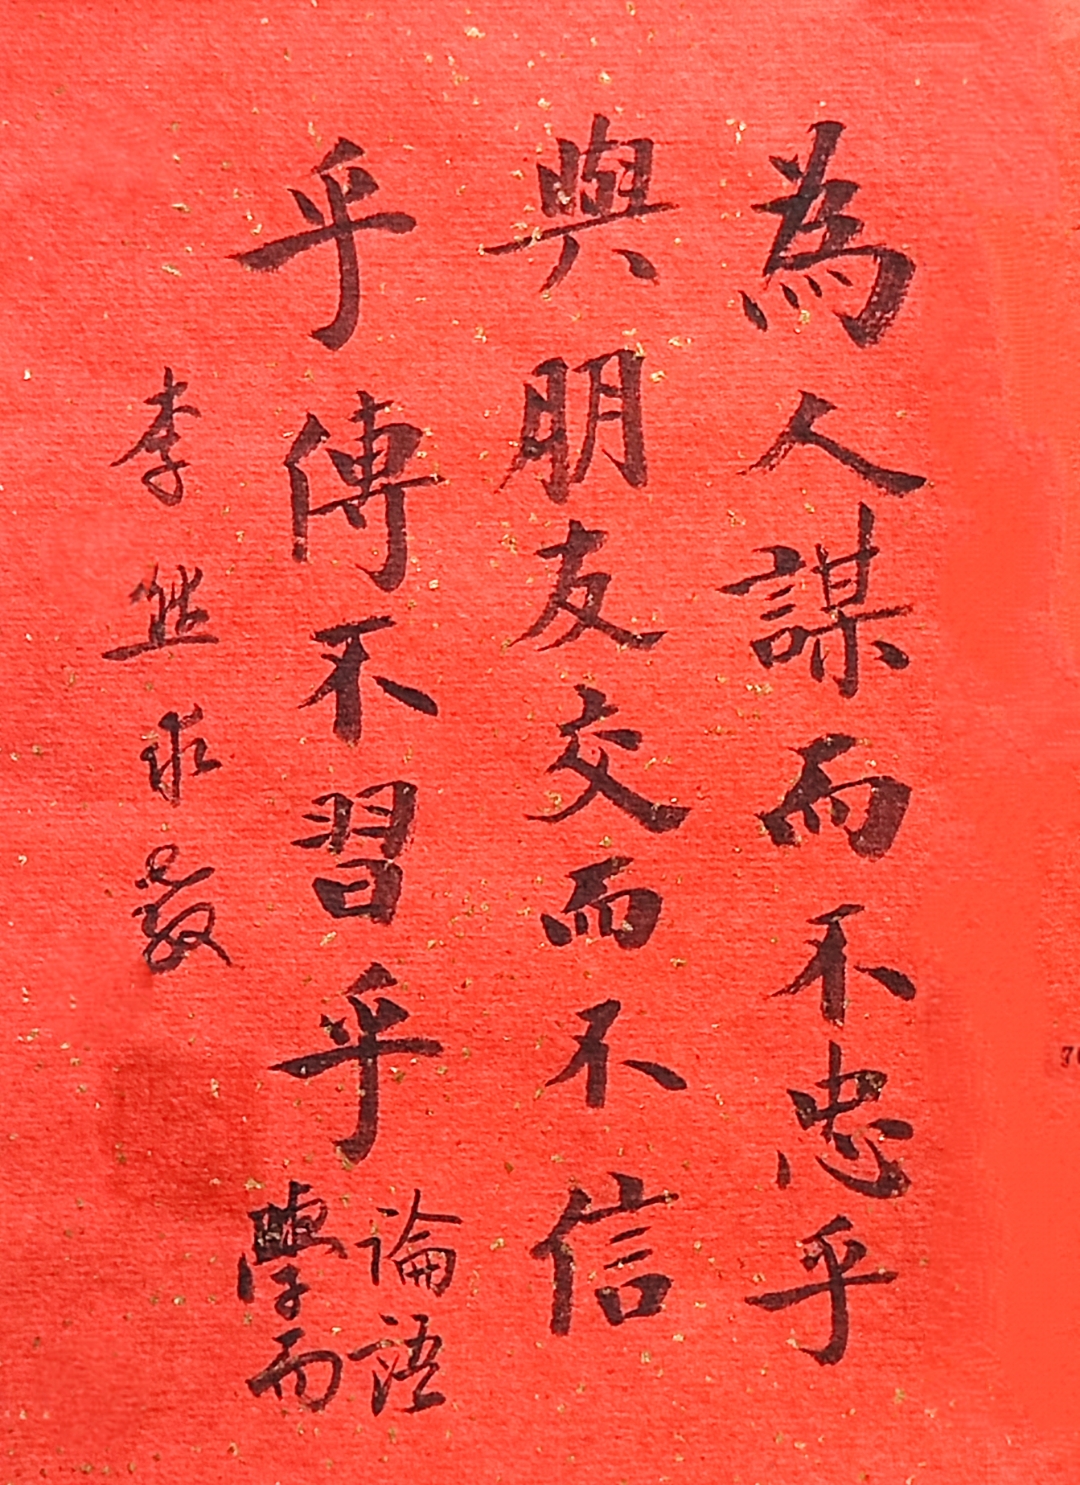 為人謀而不忠乎
與朋友交而不信
乎傳不習乎
論語
學而
李
求教